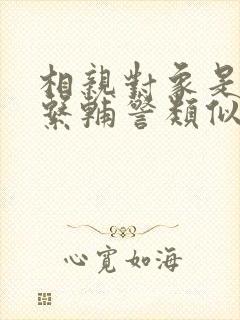 相親對象是
緊輔警類似
心寬如海